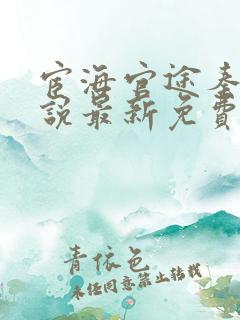 宦海官途秦
說最新免費
青依色
未经同意禁止转载